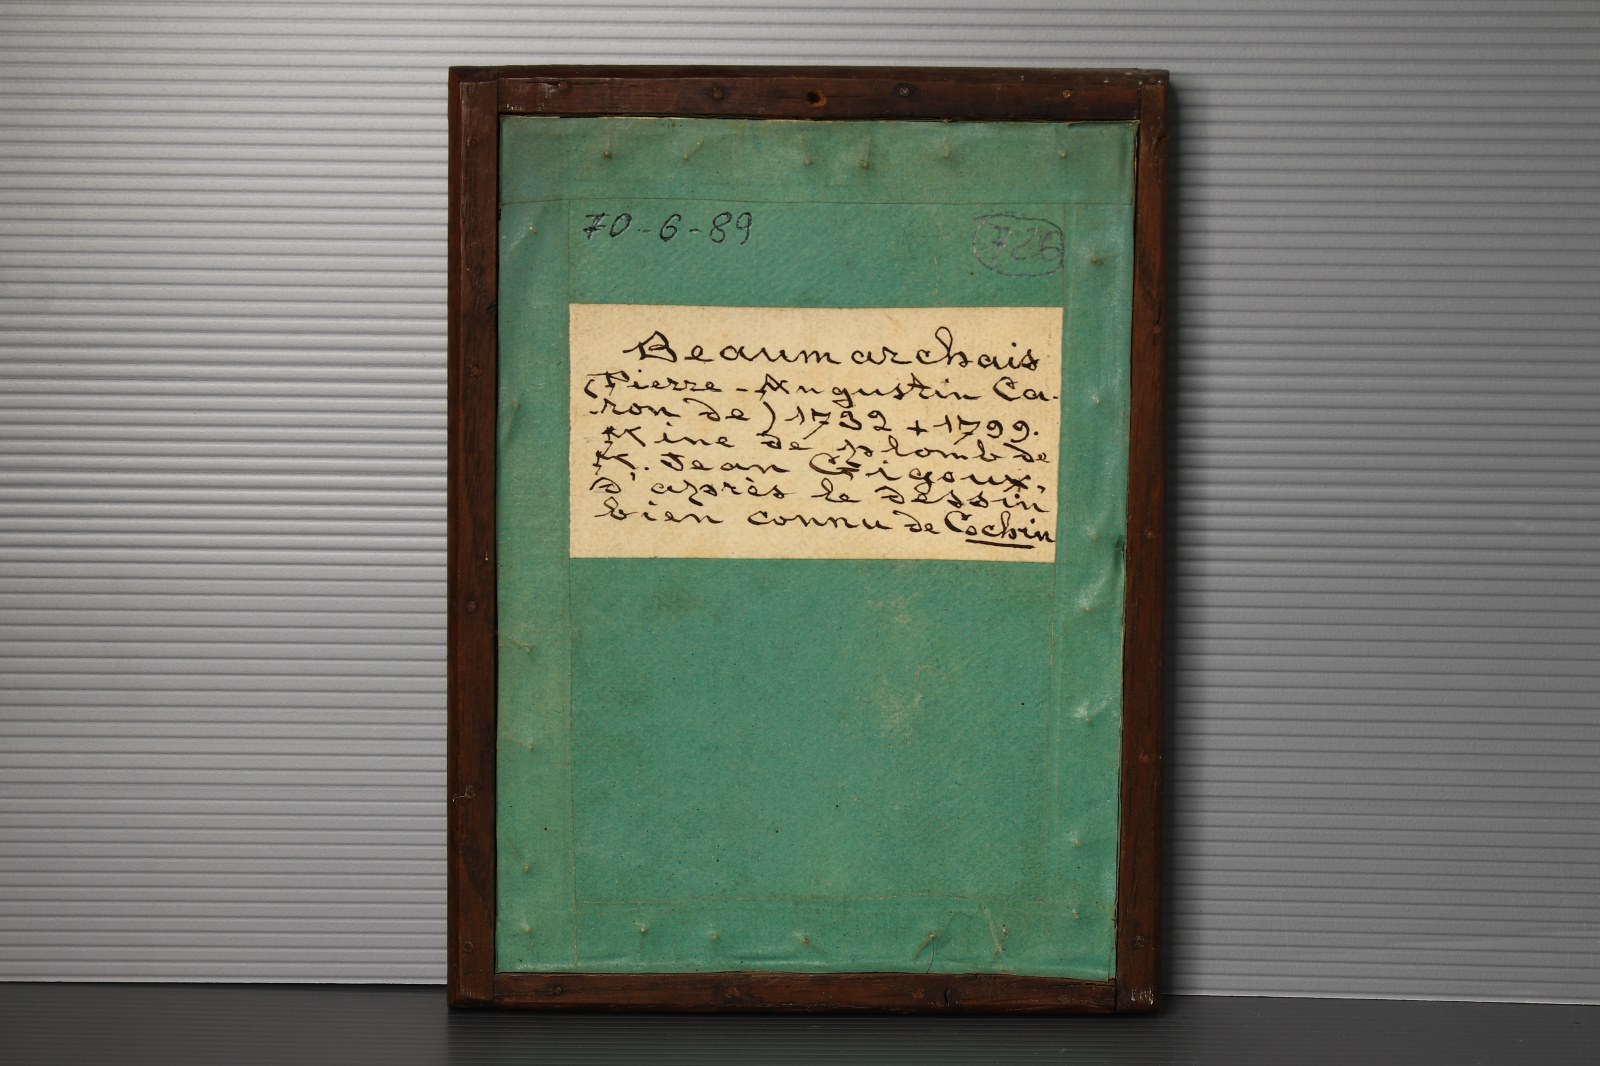 70-6-89
726
Beaumarchais
(Pierre-Augustin Ca-
ron de) 1732 + 1799.
Mine de plomb de
M. Jean Gigoux,
d'après le dessin
bien connu de Cochin